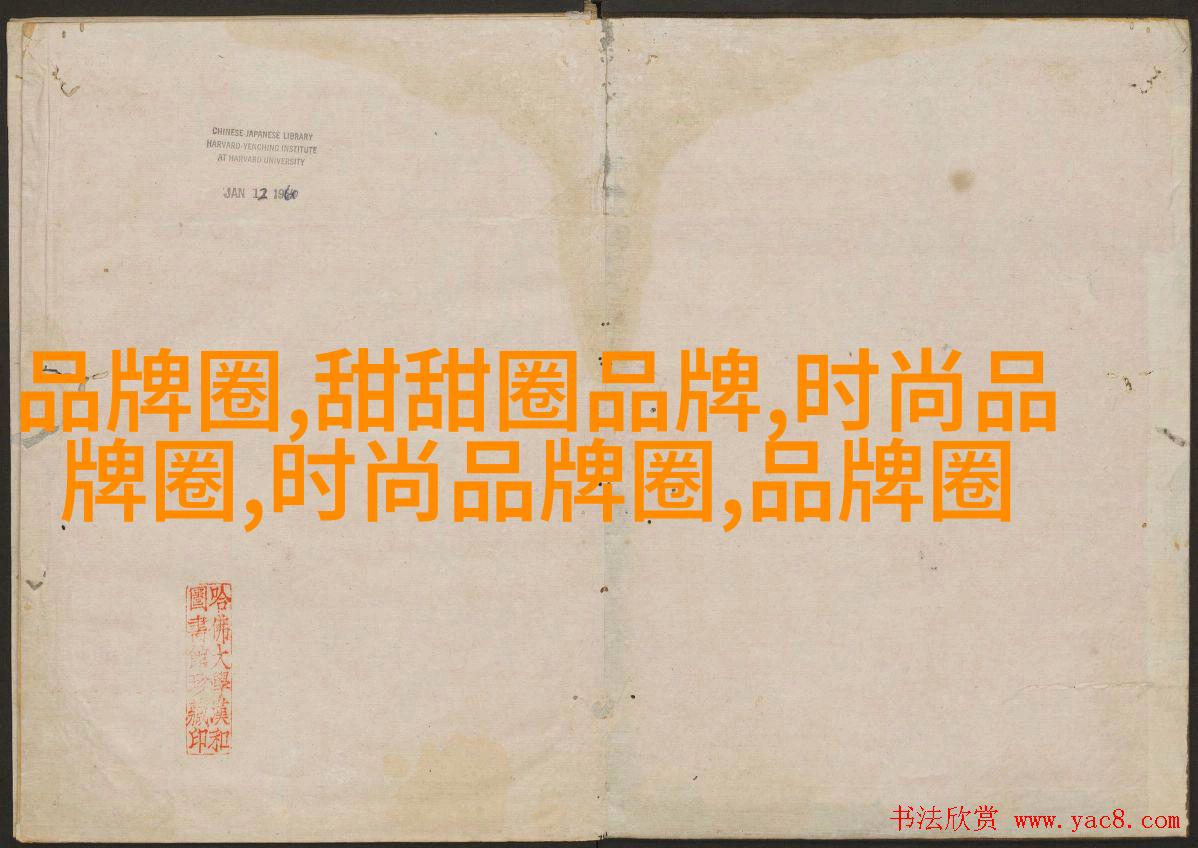 CHINESE-JAPANESE LIBRARY
HARVARD-YENCHING INSTITUTE
AT HARVARD UNIVERSITY
JAN 12 1960
品牌圈,甜甜圈品牌,时尚品
牌圈,时尚品牌圈,品牌圈
哈佛大學漢和
圖書館珍藏印
书法欣赏 www.yac8.com